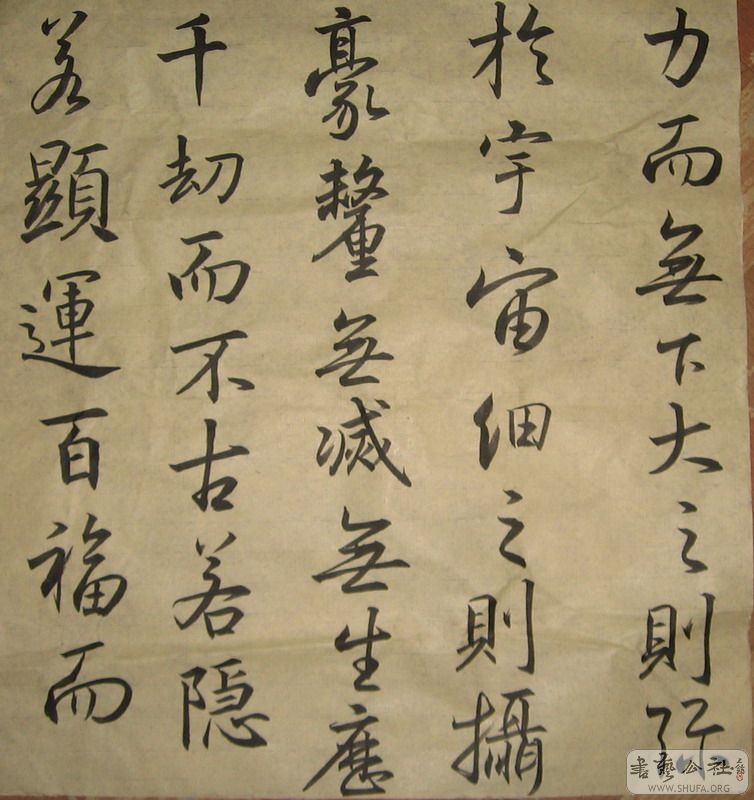 力而無下大之則弥
於宇宙細之則攝
豪釐無滅無生歷
千劫而不古若隱
若顯運百福而
書藝公社
WWW.SHUFA.ORG